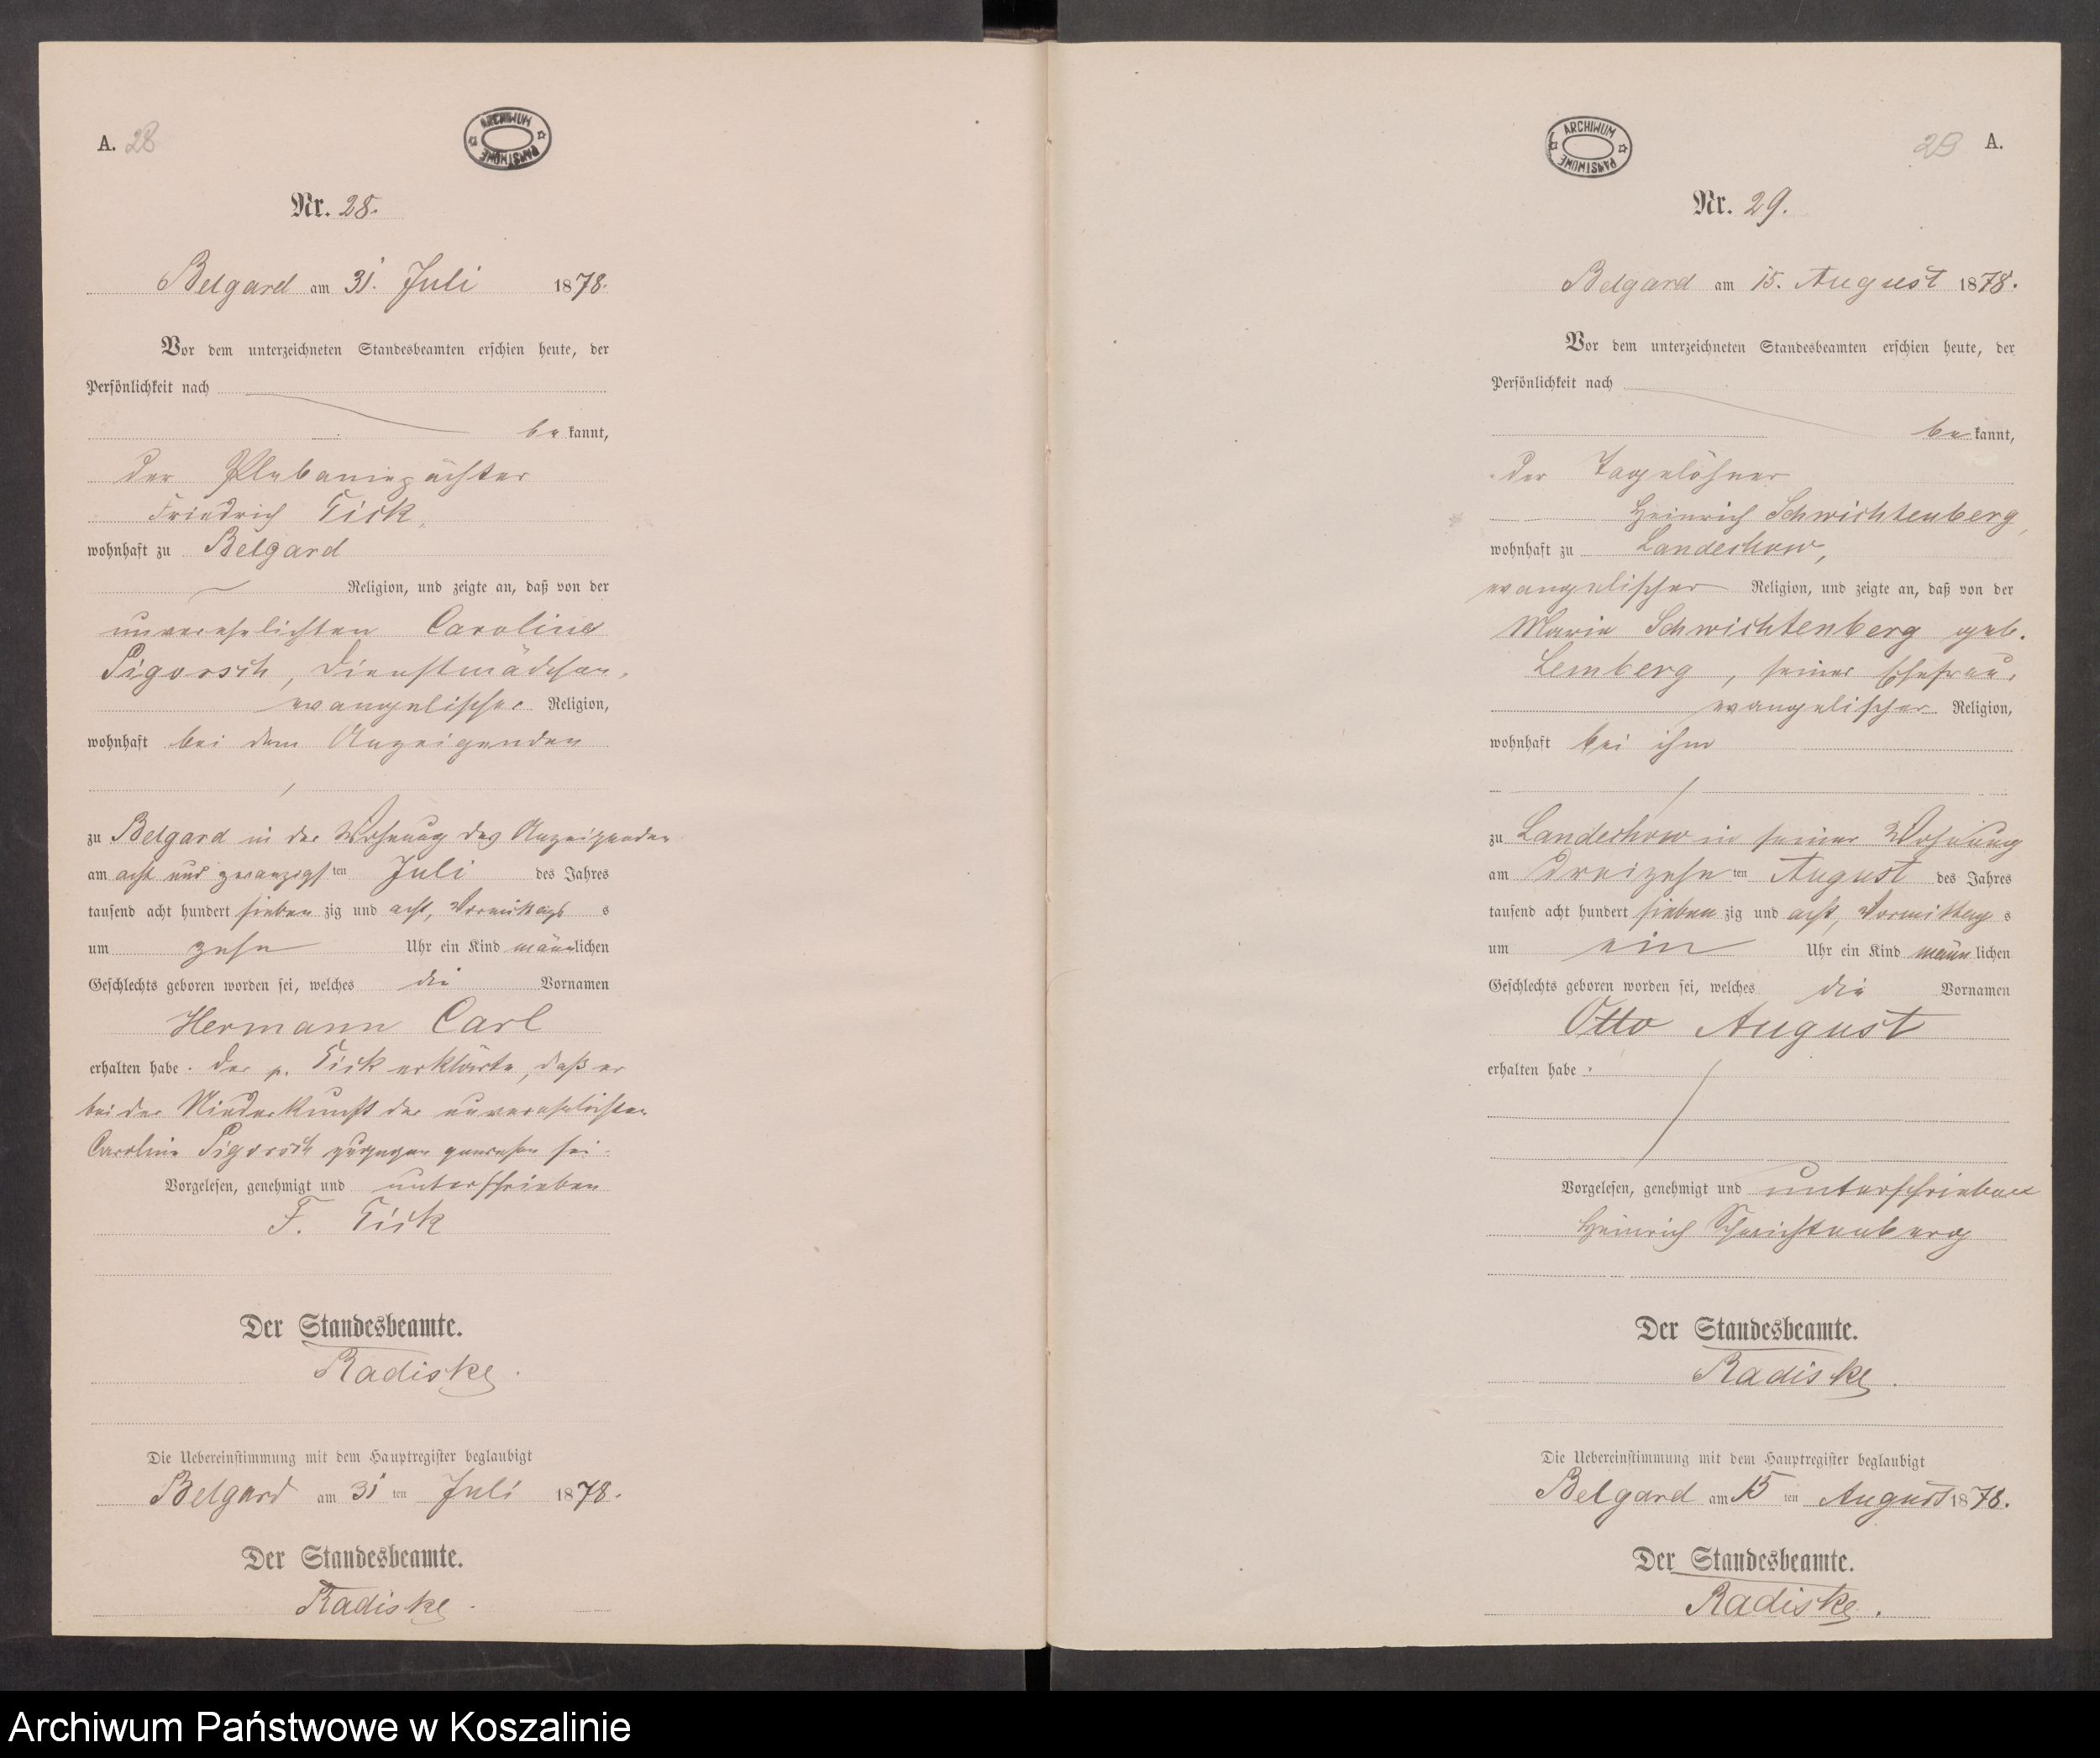 A. 28
ARCHIWUM PAŃSTWOWE
Nr. 28.
Belgard am 31. Juli 1878.
Vor dem unterzeichneten Standesbeamten erschien heute, der
Persönlichkeit nach
be kannt,
der Plebaniepächter
Friedrich Tick,
wohnhaft zu Belgard
Religion, und zeigte an, daß von der
unverehelichten Caroline
Pigorsch, Dienstmädchen,
evangelischer Religion,
wohnhaft bei dem Anzeigenden
zu Belgard in der Wohnung des Anzeigenden
am acht und zwanzigsten Juli des Jahres
tausend acht hundert siebenzig und acht, Vormittags
um zehn Uhr ein Kind männlichen
Geschlechts geboren worden sei, welches die Vornamen
Hermann Carl
erhalten habe. Der p. Tick erklärte, daß er
bei der Niederkunft der unverehelichten
Caroline Pigorsch zugegen gewesen sei.
Vorgelesen, genehmigt und unterschrieben
F. Tick
Der Standesbeamte.
Radiske.
Die Uebereinstimmung mit dem Hauptregister beglaubigt
Belgard am 31 ten Juli 1878.
Der Standesbeamte.
Radiske.
29 A.
ARCHIWUM PAŃSTWOWE
Nr. 29.
Belgard am 15. August 1878.
Vor dem unterzeichneten Standesbeamten erschien heute, der
Persönlichkeit nach
be kannt,
der Tagelöhner
Heinrich Schwichtenberg,
wohnhaft zu Landechow,
evangelischer Religion, und zeigte an, daß von der
Marie Schwichtenberg geb.
Lemberg, seiner Ehefrau,
evangelischer Religion,
wohnhaft bei ihm
zu Landechow in seiner Wohnung
am dreizehn ten August des Jahres
tausend acht hundert siebenzig und acht, Vormittags
um ein Uhr ein Kind männlichen
Geschlechts geboren worden sei, welches die Vornamen
Otto August
erhalten habe.
Vorgelesen, genehmigt und unterschrieben
Heinrich Schwichtenberg
Der Standesbeamte.
Radiske.
Die Uebereinstimmung mit dem Hauptregister beglaubigt
Belgard am 15 ten August 1878.
Der Standesbeamte.
Radiske.
Archiwum Państwowe w Koszalinie